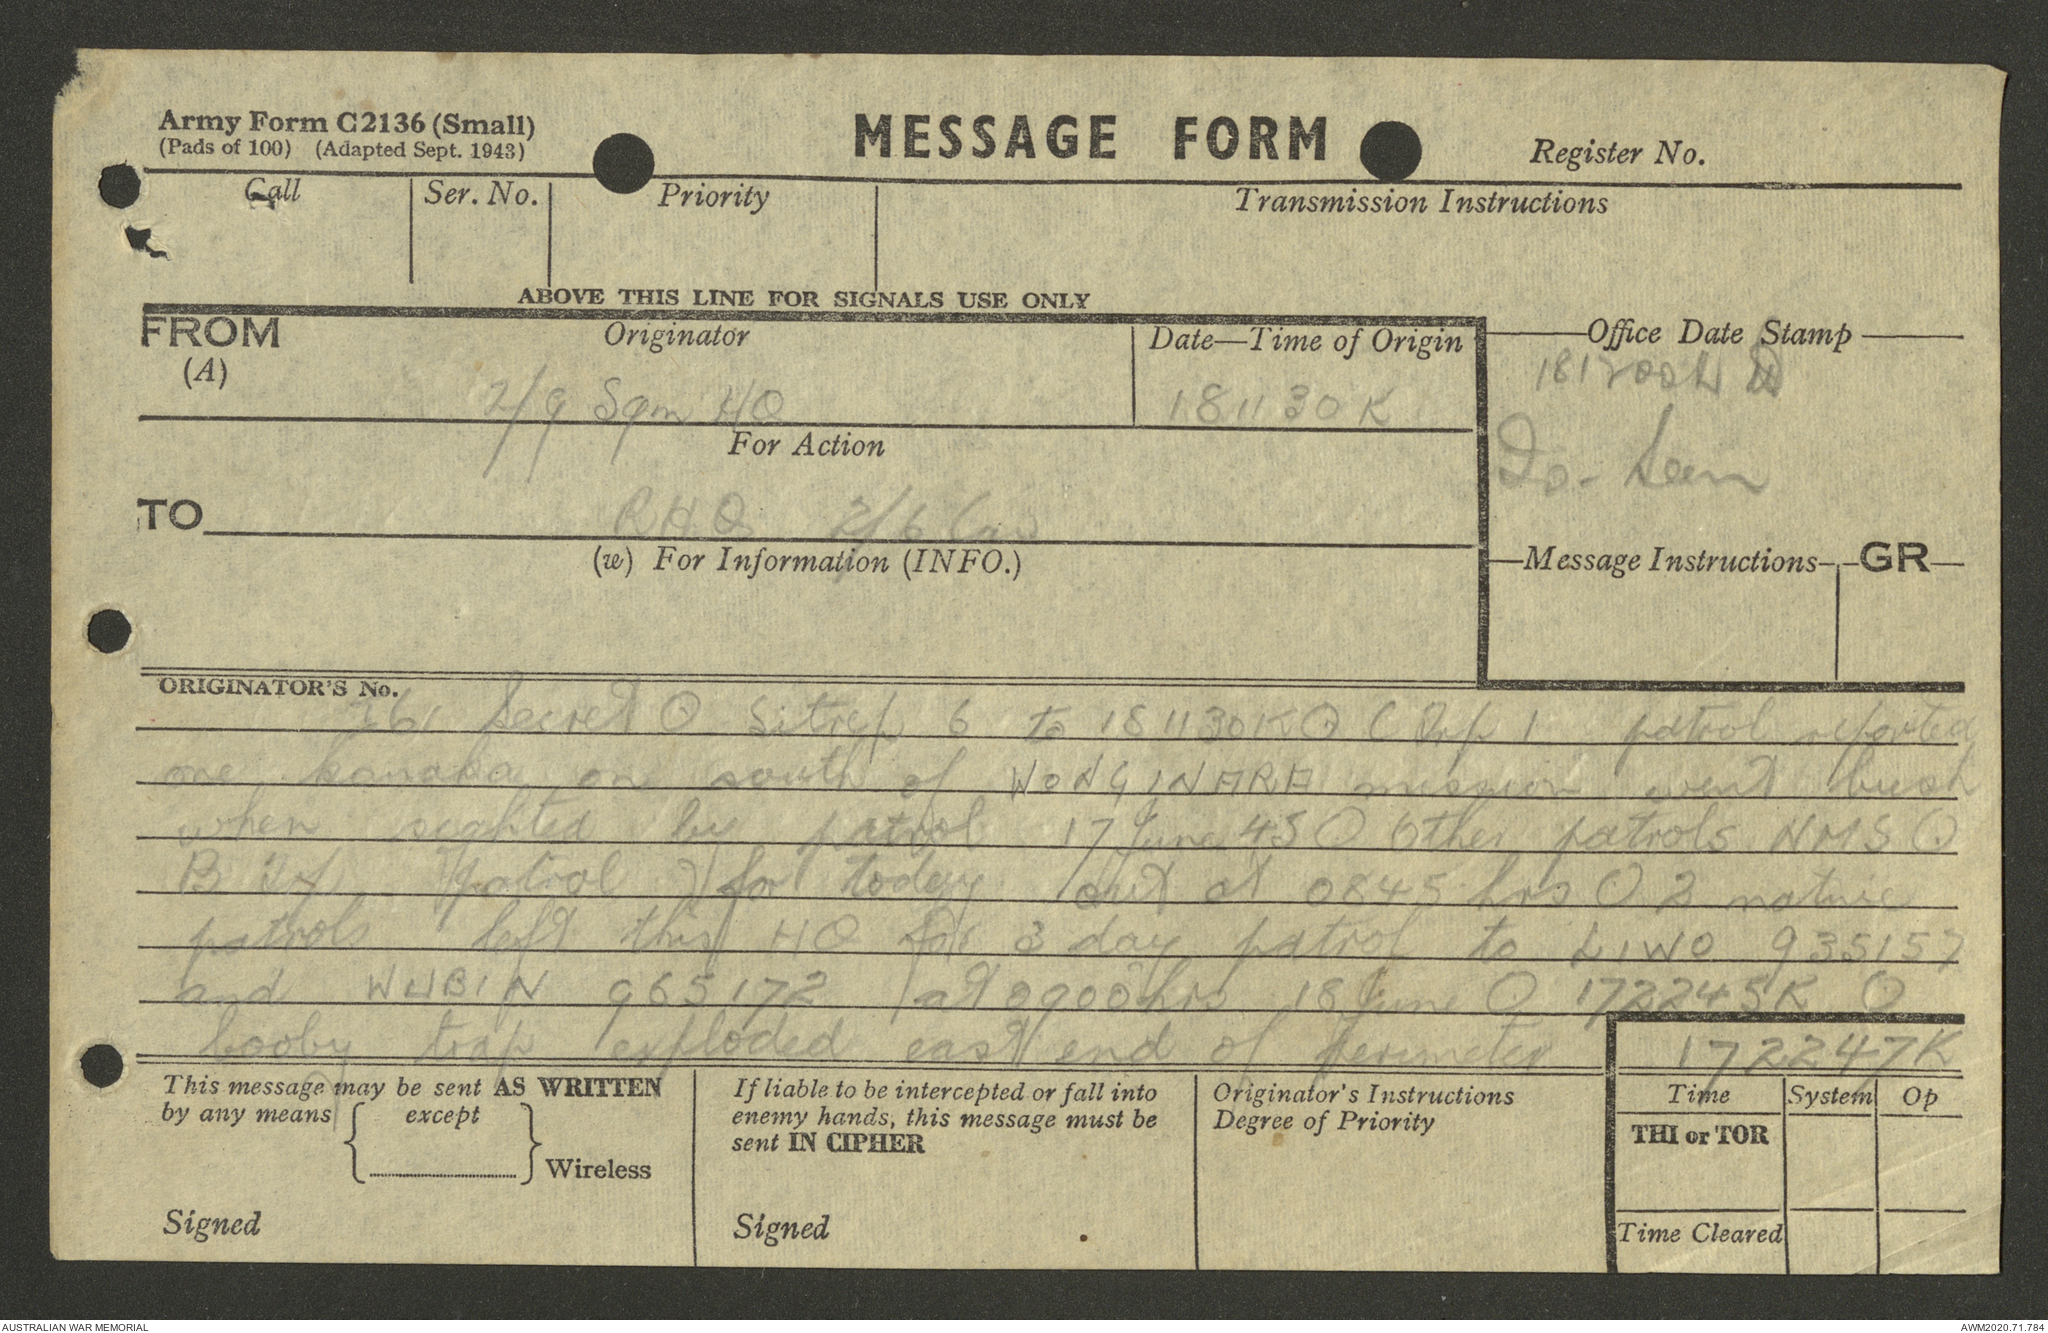 Army Form C2136 (Small)
(Pads of 100) (Adapted Sept. 1943)
MESSAGE FORM
Register No.
Call
Ser. No.
Priority
Transmission Instructions
ABOVE THIS LINE FOR SIGNALS USE ONLY
FROM
(A)
Originator
2/9 Sqn HQ
Date—Time of Origin
181130K
Office Date Stamp
IO. Seen
For Action
TO
RHQ 2/6 Cav
(w) For Information (INFO.)
Message Instructions
GR
ORIGINATOR'S No.
Secret O Sitrep 6 to 181130K O C Trp 1 patrol reported
one kanaka on south of WONGINARA mission went bush
when sighted by patrol 17 June 45 O Other patrols NMS O
B patrol for today out at 0845 hrs O 2 native
patrols left this HQ for 3 day patrol to LIWO 935157
and WUBIN 965172 at 0900 hrs 18 June O 172245K O
booby trap exploded east end of perimeter 172247K
This message may be sent AS WRITTEN
by any means except
Wireless
Signed
If liable to be intercepted or fall into
enemy hands, this message must be
sent IN CIPHER
Signed
Originator's Instructions
Degree of Priority
Time
System
Op
THI or TOR
Time Cleared
AUSTRALIAN WAR MEMORIAL
AWM2020.71.784